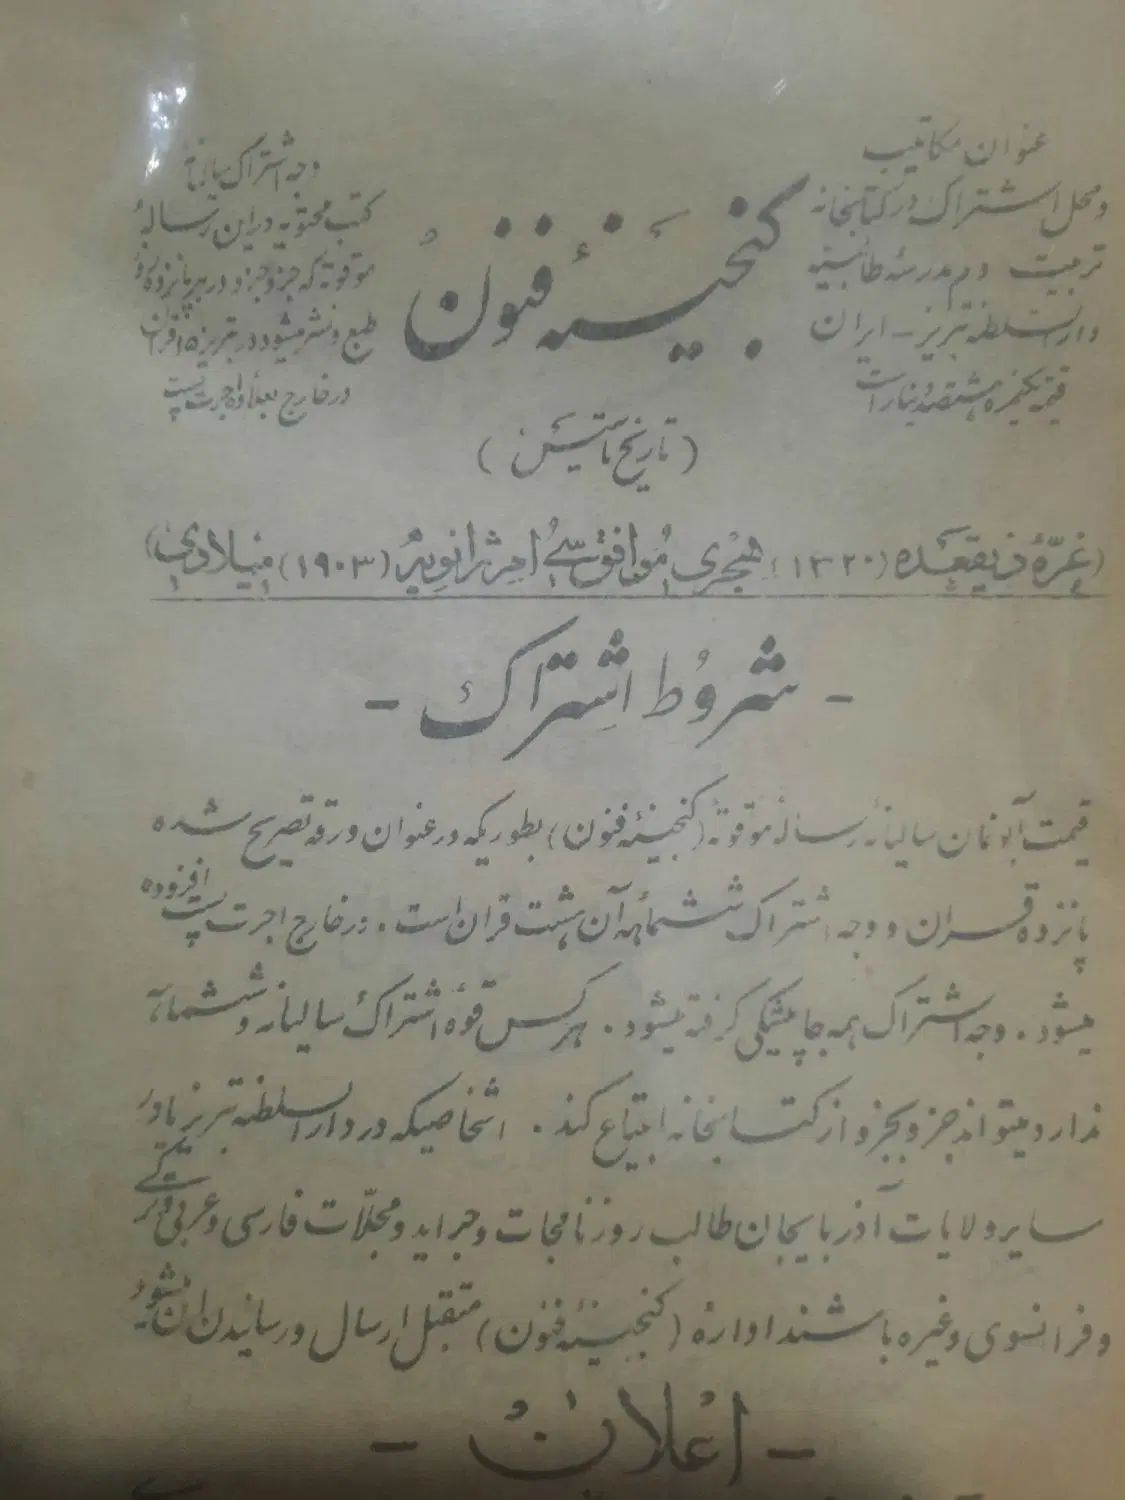 عنوان مکاتیب
و محل اشتراک در کتابخانه
تربیت و در مدرسهٔ طالبیه
دارالسلطنه تبریز - ایران
قیمت یکنمره هشتصد دینار است
گنجینهٔ فنون
وجه اشتراک سالیانهٔ
کتب محتویه در این رسالهٔ
موقوته که جزو جزو در هر پانزده روز
طبع و نشر میشود در تبریز ۱۵ قران
در خارج بعلاوه اجرت پست
(تاریخ تأسیس)
(غرّهٔ ذیقعده (۱۳۲۰) هجری موافق سی ام ژانویهٔ (۱۹۰۳) میلادی)
- شروط اشتراک -
قیمت آبونمان سالیانهٔ رسالهٔ موقوتهٔ (گنجینهٔ فنون) بطوریکه در عنوان ورقه تصریح شده
پانزده قران و وجه اشتراک ششماههٔ آن هشت قران است . در خارج اجرت پست افزوده
میشود . وجه اشتراک همه جا پیشکی گرفته میشود . هر کس قوهٔ اشتراک سالیانه و ششماهه
ندارد میتواند جزو بجزو از کتابخانه ابتیاع کند . اشخاصیکه در دارالسلطنه تبریز یا در
سایر ولایات آذربایجان طالب روزنامجات و جراید و مجلّات فارسی و عربی و ترکی
و فرانسوی و غیره باشند ادارهٔ (گنجینهٔ فنون) متقبل ارسال و رسانیدن آن میشود
- اعلان -